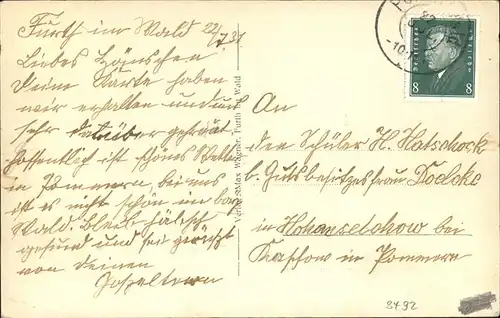 Furth im Wald 22/7 31
Liebes Hänschen
Deine Karte haben
wir erhalten und uns
sehr darüber gefreut
hoffentlich ist schönes Wetter
in Pommern, bei uns
ist es nicht schön im
Wald. bleib
gesund und sei gegrüßt
von deinen
Verlag Max Wagner, Furth im Wald
An
den Schüler H. Hatschock
b. Gutsbesitzersfrau
in Hohenselchow bei
in Pommern
Deutsches Reich
8 8
3492